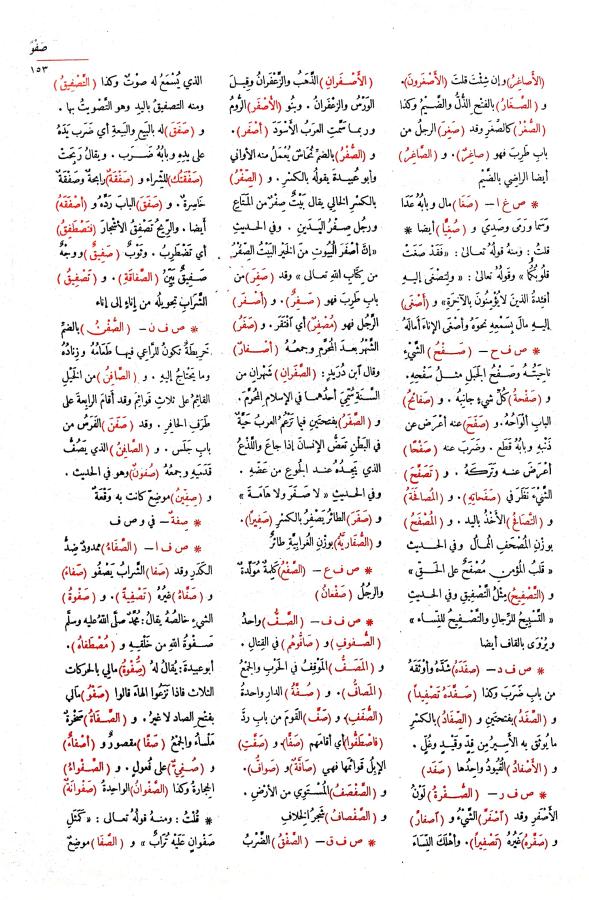 صفو
١٥٣
(الأصاغِرُ) وإن شِئْتَ قلتَ (الأَصْغَرون).
و (الصَّغَارُ) بالفتح الذُّلُّ والضَّيْمُ وكذا
(الصُّغْرُ) كالصُّغْرِ وقد (صَغِرَ) الرجلُ من
باب طَرِبَ فهو (صاغِرٌ). و (الصَّاغِرُ)
أيضا الراضي بالضَّيْم
* ص غ ا — (صَغَا) مال وبابُهُ عَدَا
وسَمَا ورَمَى وصَدِيَ و (صُغِيًّا) أيضا *
قلتُ: ومنهُ قولُهُ تعالى: «فَقَدْ صَغَتْ
قُلوبُكُما» وقولُهُ تعالى: «ولِتَصْغَى إليهِ
أفئدةُ الذينَ لا يُؤْمِنُونَ بالآخرةِ» و (أصْغَى)
إليهِ مالَ بِسَمْعِهِ نحوَهُ وأصْغَى الإناءَ أمالَهُ
* ص ف ح — (صَفْحُ) الشيْءِ
ناحِيَتُهُ وصَفْحُ الجَبَلِ مثلُ سَفْحِهِ.
و (صَفْحَةُ) كلِّ شيءٍ جانِبُهُ. و (صفائحُ)
البابِ ألْوَاحُهُ. و (صَفَحَ) عنه أعْرَضَ عن
ذَنْبِهِ وبابُهُ قَطَع. وضَرَبَ عنه (صَفْحًا)
أعْرَضَ عنه وتَرَكَهُ. و (تَصَفَّحَ)
الشيءَ نَظَرَ في (صَفَحاتِهِ). و (المُصَافَحَةُ)
و (التَّصافُحُ) الأخْذُ باليد. و (المُصْفَحُ)
بوزنِ المُصْحَفِ المُمَالُ وفي الحديث
«قلبُ المؤمن مُصْفَحٌ على الحَقِّ»
و (التَّصْفيحُ) مِثْلُ التَّصْفيقِ وفي الحديث
«التَّسْبيحُ للرِّجالِ والتَّصْفيحُ للنِّساء»
ويُرْوَى بالقاف أيضا
* ص ف د — (صَفَدَهُ) شَدَّهُ وأوْثَقَهُ
من باب ضَرَبَ وكذا (صَفَّدَهُ تَصْفيدًا)
و (الصَّفَدُ) بفتحتين و (الصِّفَادُ) بالكسْر
ما يُوثَقُ به الأسيرُ من قِدٍّ وقَيْدٍ وغُلٍّ.
و (الأصْفادُ) القُيُودُ واحِدُها (صَفَد)
* ص ف ر — (الصُّفْرَةُ) لَوْنُ
الأصْفَرِ وقد (اصْفَرَّ) الشيْءُ و (اصفارَّ)
و (صَفَّرَهُ) غَيْرُهُ (تَصْفيرًا). وأهْلَكَ النِّسَاءَ
(الأصْفَرانِ) الذَّهَبُ والزَّعْفَرانُ وقِيلَ
الوَرْسُ والزعْفرانُ. وبَنُو (الأصْفَرِ) الرُّومُ
وربما سَمَّتِ العَرَبُ الأسْوَدَ (أصْفَر).
و (الصُّفْرُ) بالضم نُحَاسٌ يُعْمَلُ منه الأواني
وأبو عُبيدةَ يقولُهُ بالكسْر. و (الصِّفْرُ)
بالكسْر الخالي يقال بَيْتٌ صِفْرٌ من المَتَاعِ
ورجلٌ صِفْرُ اليَدَيْن. وفي الحديث
«إنَّ أصْفَرَ البُيُوتِ من الخَيْرِ البَيْتُ الصِّفْرُ
من كِتَابِ اللهِ تعالى» وقد (صَفِرَ) من
باب طَرِبَ فهو (صَفِرٌ). و (أصْفَرَ)
الرَّجُلُ فهو (مُصْفِرٌ) أي آفْتَقَر. و (صَفَرٌ)
الشَّهْرُ بعدَ المُحَرَّمِ وجمعُهُ (أصْفارٌ)
وقال آبن دُرَيْدٍ: (الصَّفَرانِ) شَهْرانِ من
السَّنَةِ سُمِّيَ أحدُهما في الإسلامِ المُحَرَّم.
و (الصَّفَرُ) بفتحتين فيما تَزْعُمُ العَرَبُ حَيَّةٌ
في البَطْنِ تَعَضُّ الإنسانَ إذا جاعَ واللَّدْغُ
الذي يَجِدُهُ عند الجُوعِ من عَضِّهِ.
وفي الحديث «لا صَفَرَ ولا هامَةَ»
و (صَفَرَ) الطائرُ يَصْفِرُ بالكسْر (صَفيرًا).
و (الصُّفَارِيَّةُ) بوزنِ الغُرَابِيَّةِ طائرٌ
* ص ف ع — (الصَّفْعُ) كلمةٌ مُوَلَّدَةٌ
والرجُلُ (صَفْعانُ)
* ص ف ف — (الصَّفُّ) واحدُ
(الصُّفوفِ) و (صافُّوهُم) في القِتال.
و (المَصَفُّ) المَوْقِفُ في الحَرْبِ والجَمْعُ
(المَصافُّ). و (صُفَّةُ) الدارِ واحدةُ
(الصُّفَفِ) و (صَفَّ) القَوْمَ من بابِ رَدَّ
(فاصْطَفُّوا) أي أقامَهم (صَفًّا) و (صَفَّتِ)
الإبِلُ قوائمَها فهي (صافَّةٌ) و (صَوافُّ).
و (الصَّفْصَفُ) المُسْتَوِي من الأرْضِ.
و (الصَّفْصافُ) شجرُ الخِلافِ
* ص ف ق — (الصَّفْقُ) الضَّرْبُ
الذي يُسْمَعُ له صوتٌ وكذا (التَّصْفيقُ)
ومنه التصفيقُ باليدِ وهو التَّصْويتُ بها.
و (صَفَقَ) له بالبَيْعِ والبَيْعةِ أي ضَرَبَ يَدَهُ
على يدِهِ وبابُهُ ضَرَب. ويقالُ رَبِحَتْ
(صَفْقَتُكَ) للشِّراءِ و (صَفْقَةٌ) رابحةٌ وصَفْقَةٌ
خاسِرةٌ. و (صَفَقَ) البابَ رَدَّهُ و (أصْفَقَهُ)
أيضا. والرِّيحُ تَصْفِقُ الأشْجارَ (فَتَصْطَفِقُ)
أي تَضْطَرِبُ. وثَوْبٌ (صَفيقٌ) ووجْهٌ
صَفيقٌ بَيِّنُ (الصَّفاقَةِ). و (تَصْفيقُ)
الشَّرابِ تحويلُهُ من إناءٍ إلى إناءٍ
* ص ف ن — (الصُّفْنُ) بالضمِّ
خَريطةٌ تكونُ للرَّاعي فيها طَعامُهُ وزِنادُهُ
وما يَحْتاجُ إليه. و (الصَّافِنُ) من الخَيْلِ
القائمُ على ثلاثِ قَوائمَ وقد أقامَ الرابعةَ على
طَرَفِ الحافِرِ. وقد (صَفَنَ) الفَرَسُ من
باب جَلَس. و (الصَّافِنُ) الذي يَصُفُّ
قَدَمَيْهِ وجمعُهُ (صُفونٌ) وهو في الحديث.
و (صِفِّينُ) موضِعٌ كانت به وَقْعَةٌ
* صِفَةٌ — في و ص ف
* ص ف ا — (الصَّفَاءُ) ممدودٌ ضِدُّ
الكَدَرِ وقد (صَفا) الشَّرابُ يَصْفُو (صَفاءً)
و (صَفَّاهُ) غيرُهُ (تَصْفِيةً). و (صَفْوَةُ)
الشيءِ خالصُهُ يقالُ: مُحَمَّدٌ صلى الله عليه وسلم
صَفْوَةُ اللهِ من خَلْقِهِ و (مُصْطَفَاهُ).
أبوعبيدةَ: يُقالُ له (صُِفْوَةُ) مالي بالحركات
الثلاث فاذا نَزَعُوا الهاءَ قالوا (صَفْوُ) مالي
بفتح الصاد لا غيرُ. و (الصَّفَاةُ) صَخْرةٌ
مَلْساءُ والجَمْعُ (صَفًا) مقصورٌ و (أصْفاءٌ)
و (صُفِيٌّ) على فُعولٍ. و (الصَّفْواءُ)
الحِجارةُ وكذا (الصَّفْوانُ) الواحدةُ (صَفْوانَةٌ)
* قُلْتُ: ومنهُ قولُهُ تعالى: «كَمَثَلِ
صَفْوانٍ عَلَيْهِ تُرَابٌ» و (الصَّفَا) موضِعٌ